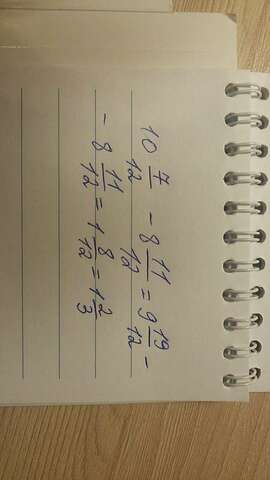 10 7/12 - 8 11/12 = 9 19/12 -
- 8 11/12 = 1 8/12 = 1 2/3